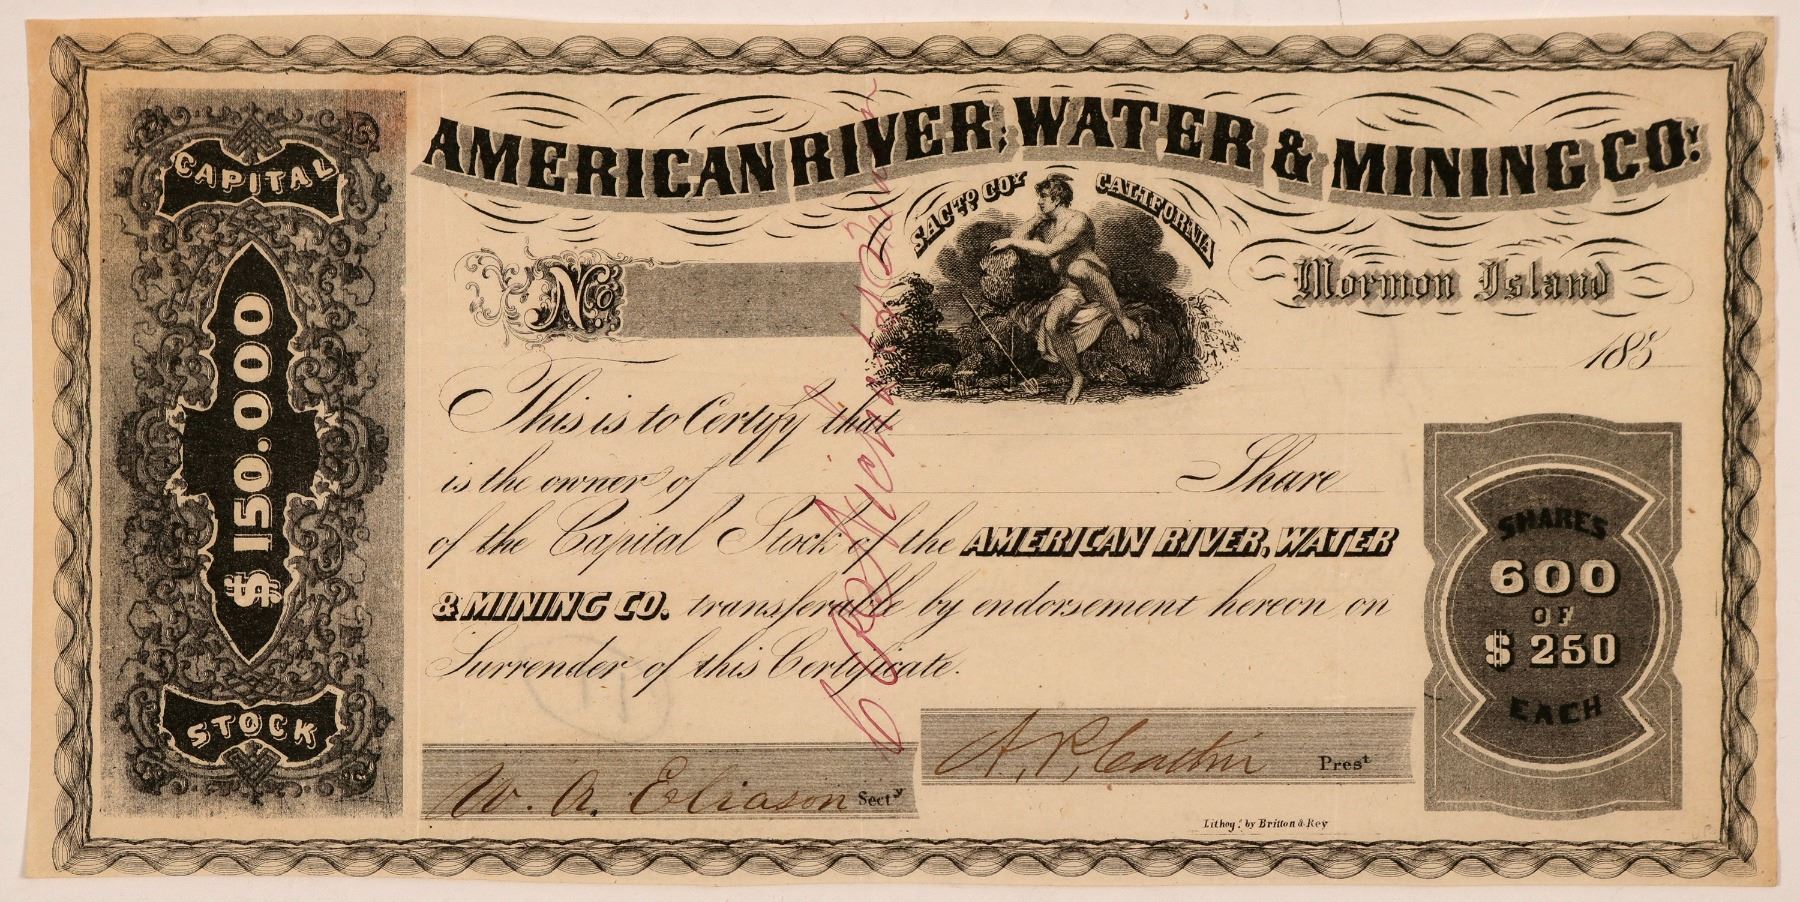 AMERICAN RIVER, WATER & MINING COY.
SACTO COY CALIFORNIA
CAPITAL
$150.000
STOCK
No.
Mormon Island
185
This is to Certify that
is the owner of Share
of the Capital Stock of the AMERICAN RIVER, WATER
& MINING CO. transferable by endorsement hereon on
Surrender of this Certificate.
SHARES
600
OF
$250
EACH
W. A. Eliason Secty
A. P. Catlin Prest
Lithogd. by Britton & Rey